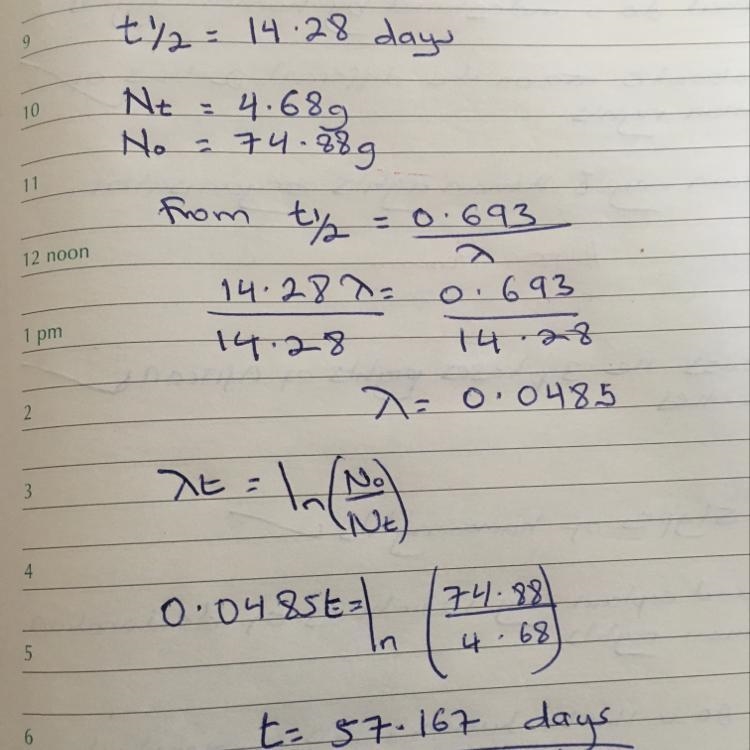 9
t½ = 14.28 days
10
Nt = 4.68g
N₀ = 74.88g
11
From t½ = 0.693 / λ
12 noon
14.28 λ / 14.28 = 0.693 / 14.28
1 pm
λ = 0.0485
2
3
λt = ln(N₀/Nt)
4
0.0485t = ln(74.88/4.68)
5
6
t = 57.167 days